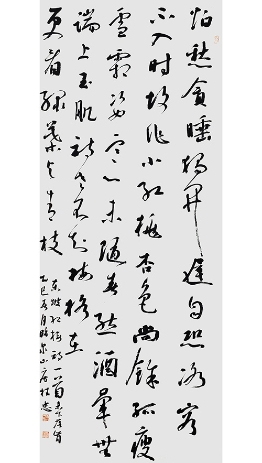 怕愁贪睡独开迟自恐冰容
不入时故作小红桃杏色尚余孤瘦
雪霜姿寒心未随春态酒晕无
端上玉肌诗老不知梅格在
更看绿叶与青枝
东坡红梅诗一首
乙巳